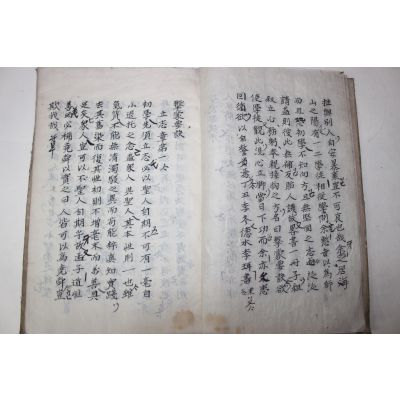 余定居海
山之陽有一二學徒相從學問余慙無以爲師
而且恐初學不知向方且無堅固之志而泛泛
請益則彼此無補反貽人譏故畧書一冊子粗
敘立心飭躬奉親接物之方名曰擊蒙要訣欲
使學徒觀此洗心立脚當日下功而余亦久患
因循欲以自警省焉丁丑季冬德水李珥書
擊蒙要訣
立志章第一
初學先須立志必以聖人自期不可有一毫自
小退托之念盖衆人與聖人其本性則一也雖
氣質不能無淸濁粹駁之異而苟能眞知實踐
去其舊染而復其性初則不增毫末而萬善具
足矣衆人豈可不以聖人自期乎故孟子道性
善而必稱堯舜以實之曰人皆可以爲堯舜豈
欺我哉